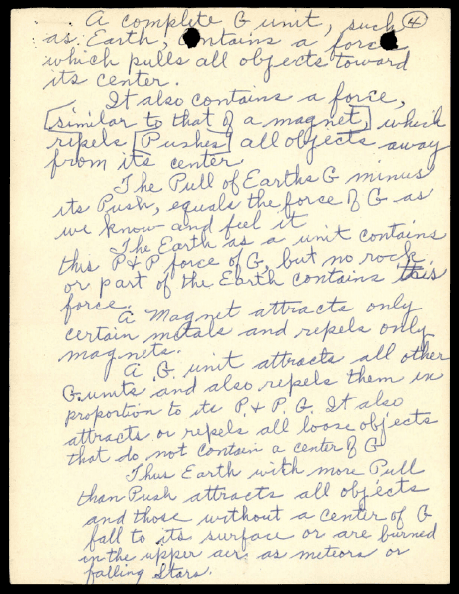 A complete G unit, such ④
as Earth, contains a force
which pulls all objects toward
its center.
It also contains a force,
[similar to that of a magnet,] which
repels [Pushes] all objects away
from its center
The Pull of Earths G minus
its Push, equals the force of G as
we know and feel it
The Earth as a unit contains
this P & P force of G, but no rock
or part of the Earth contains this
force.
A Magnet attracts only
certain metals and repels only
magnets.
A G. unit attracts all other
G. units and also repels them in
proportion to its P. & P. G. It also
attracts or repels all loose objects
that do not contain a center of G
Thus Earth with more Pull
than Push attracts all objects
and those without a center of G
fall to its surface or are burned
in the upper air as meteors or
falling Stars.